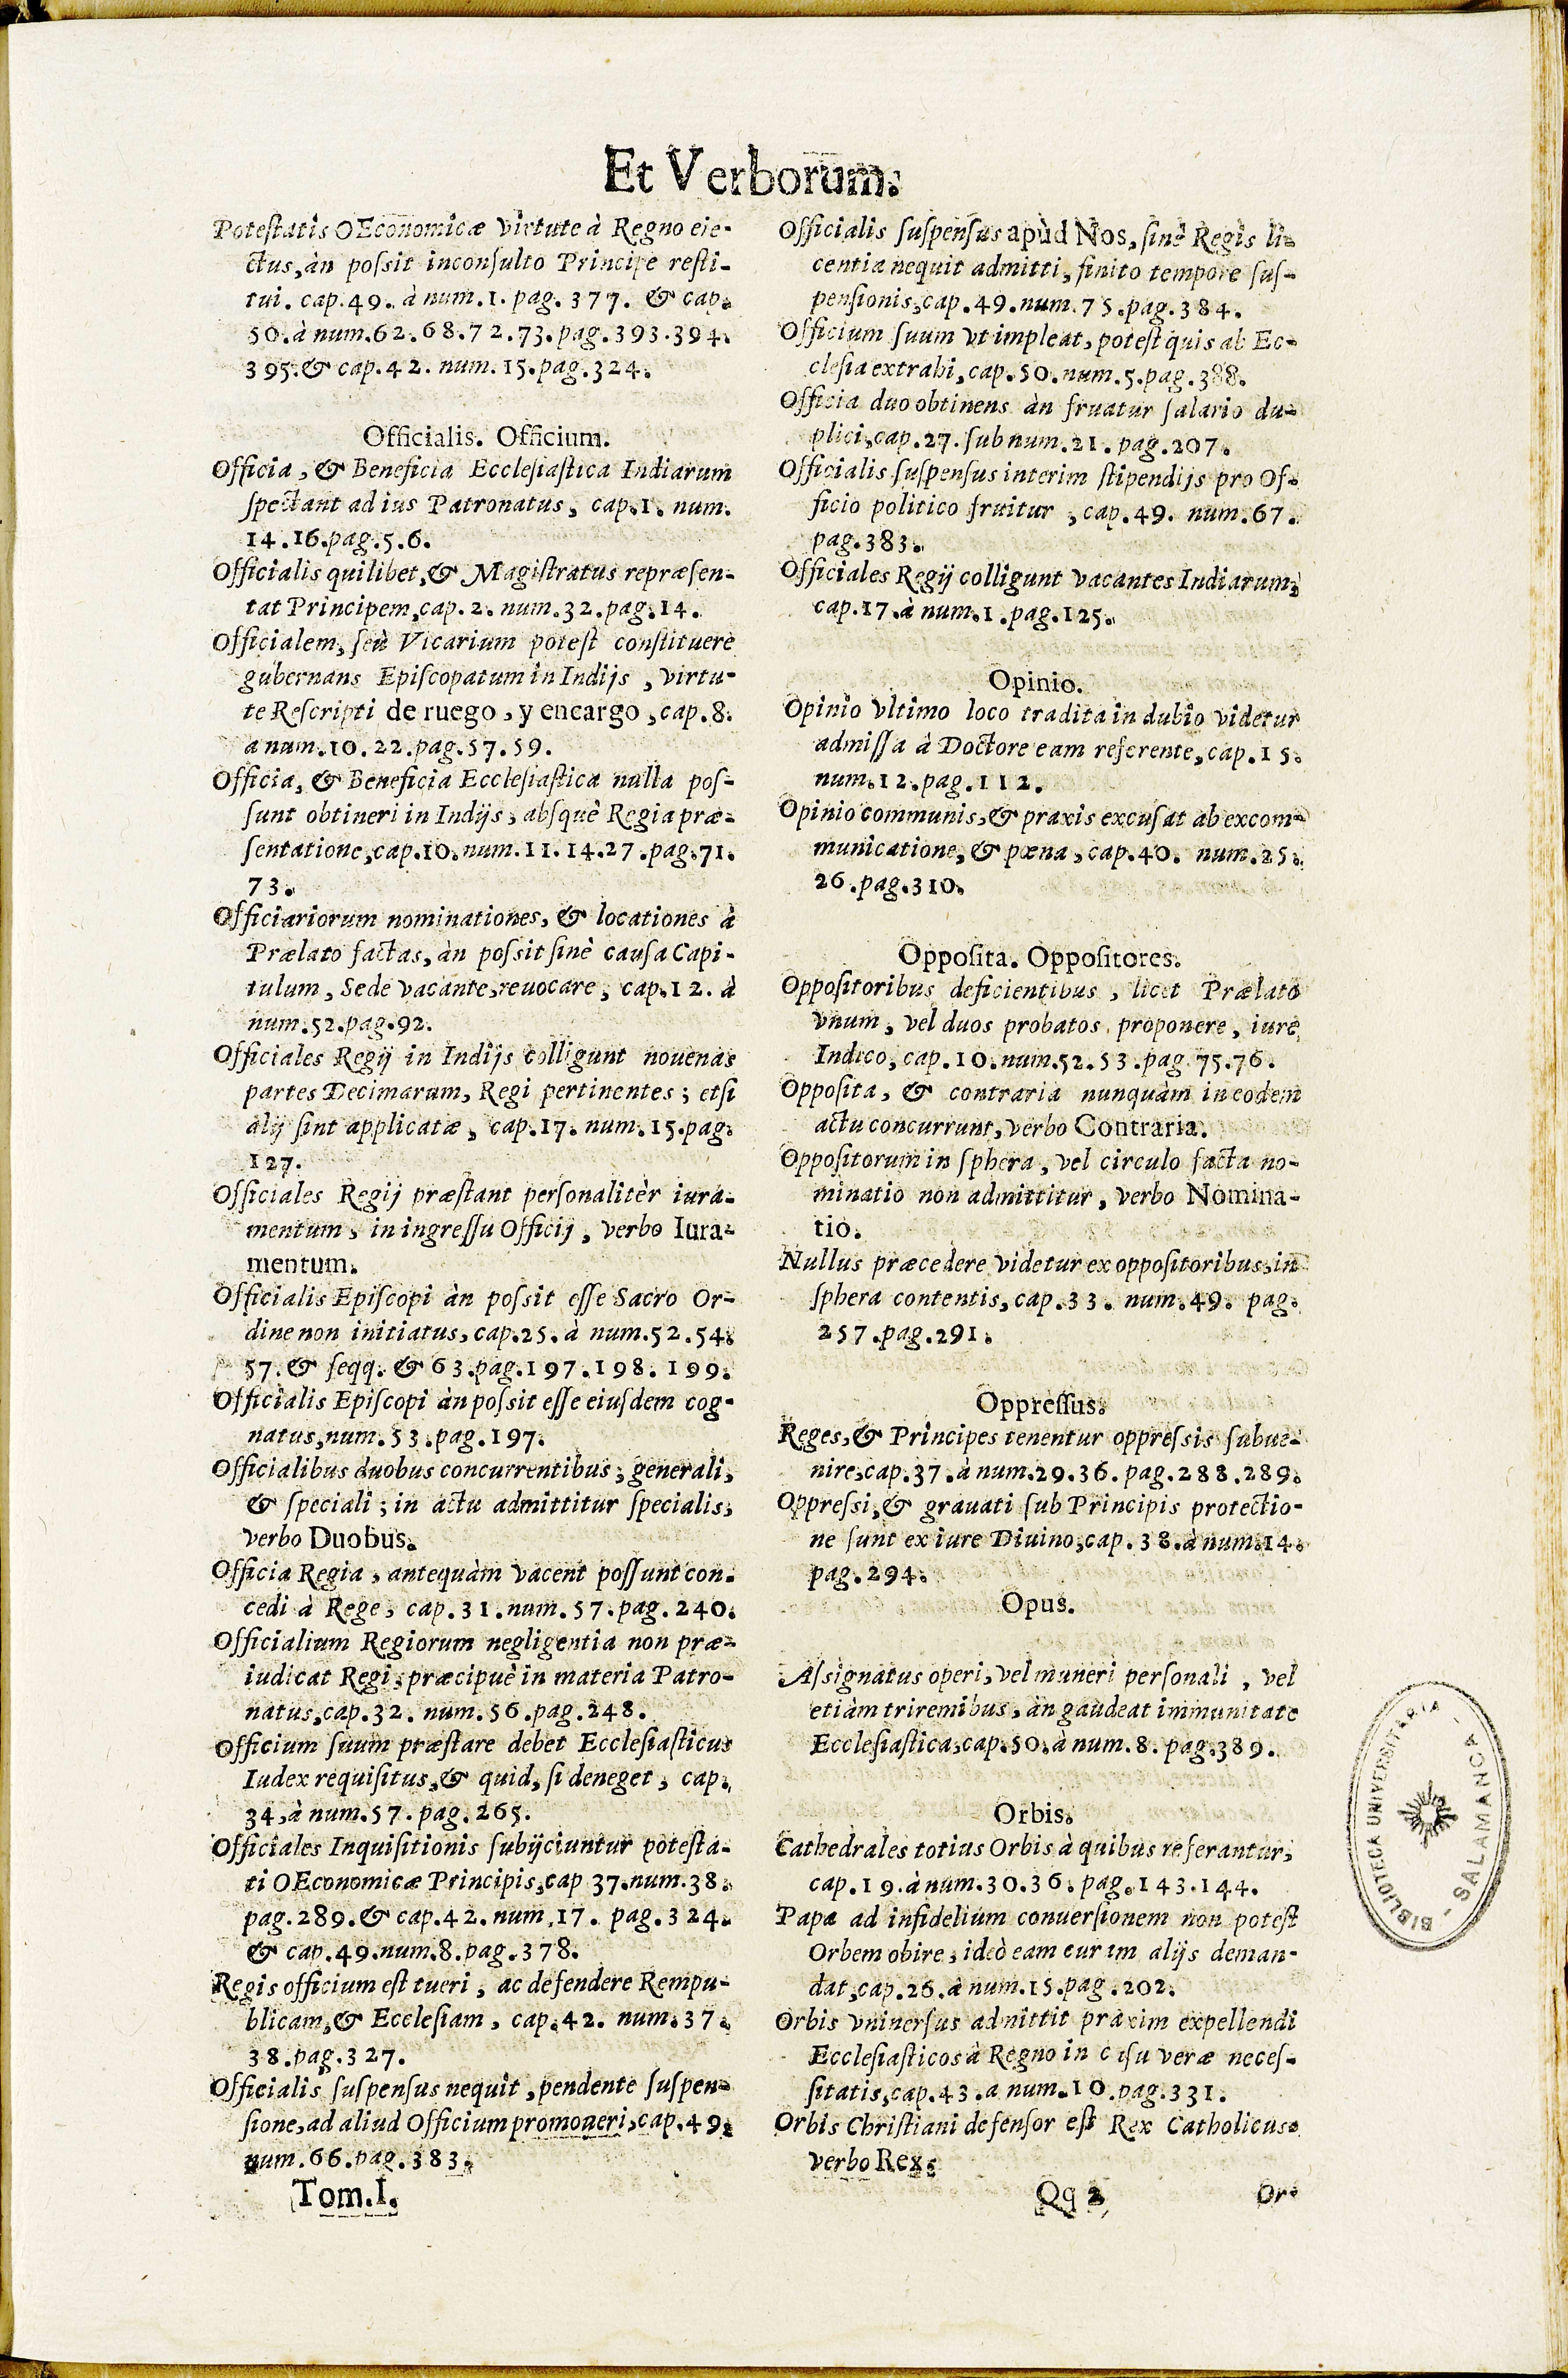 Et Verborum.
Poteſtatis OEconomicæ virtute à Regno eie-
ctus, àn poſsit inconſulto Principe reſti-
tui. cap. 49. à num. 1. pag. 377. & cap.
50. à num. 62. 68. 72. 73. pag. 393. 394.
395. & cap. 42. num. 15. pag. 324.
Officialis. Officium.
Officia, & Beneficia Eccleſiaſtica Indiarum
ſpectant ad ius Patronatus, cap. 1. num.
14. 16. pag. 5. 6.
Officialis quilibet, & Magiſtratus repræſen-
tat Principem, cap. 2. num. 32. pag. 14.
Officialem, ſeù Vicarium poteſt conſtituere
gubernans Epiſcopatum in Indijs, virtu-
te Reſcripti de ruego, y encargo, cap. 8.
a num. 10. 22. pag. 57. 59.
Officia, & Beneficia Eccleſiaſtica nulla poſ-
ſunt obtineri in Indijs, abſquè Regia præ-
ſentatione, cap. 10. num. 11. 14. 27. pag. 71.
73.
Officiariorum nominationes, & locationes à
Prælato factas, àn poſsit ſinè cauſa Capi-
tulum, Sede vacante, reuocare, cap. 12. à
num. 52. pag. 92.
Officiales Regij in Indijs colligunt nouenas
partes Decimarum, Regi pertinentes; etſi
alij ſint applicatæ, cap. 17. num. 15. pag.
127.
Officiales Regij præſtant perſonalitèr iura-
mentum, in ingreſſu Officij, verbo Iura-
mentum.
Officialis Epiſcopi àn poſsit eſſe Sacro Or-
dine non initiatus, cap. 25. à num. 52. 54.
57. & ſeqq. & 63. pag. 197. 198. 199.
Officialis Epiſcopi àn poſsit eſſe eiuſdem cog-
natus, num. 53. pag. 197.
Officialibus duobus concurrentibus; generali,
& ſpeciali; in actu admittitur ſpecialis,
verbo Duobus.
Officia Regia, antequàm vacent poſſunt con-
cedi à Rege, cap. 31. num. 57. pag. 240.
Officialium Regiorum negligentia non præ-
iudicat Regi; præcipuè in materia Patro-
natus, cap. 32. num. 56. pag. 248.
Officium ſuum præſtare debet Eccleſiaſticus
Iudex requiſitus, & quid, ſi deneget, cap.
34, à num. 57. pag. 265.
Officiales Inquiſitionis ſubijciuntur poteſta-
ti OEconomicæ Principis, cap 37. num. 38.
pag. 289. & cap. 42. num. 17. pag. 324.
& cap. 49. num. 8. pag. 378.
Regis officium eſt tueri, ac defendere Rempu-
blicam, & Eccleſiam, cap. 42. num. 37.
38. pag. 327.
Officialis ſuſpenſus nequit, pendente ſuſpen-
ſione, ad aliud Officium promoueri, cap. 49.
num. 66. pag. 383.
Tom. I.
Officialis ſuſpenſus apùd Nos, ſinè Regis li-
centia nequit admitti, finito tempore ſuſ-
penſionis, cap. 49. num. 75. pag. 384.
Officium ſuum vt impleat, poteſt quis ab Ec-
cleſia extrahi, cap. 50. num. 5. pag. 388.
Officia duo obtinens àn fruatur ſalario du-
plici, cap. 27. ſub num. 21. pag. 207.
Officialis ſuſpenſus interim ſtipendijs pro Of-
ficio politico fruitur, cap. 49. num. 67.
pag. 383.
Officiales Regij colligunt vacantes Indiarum,
cap. 17. à num. 1. pag. 125.
Opinio.
Opinio vltimo loco tradita in dubio videtur
admiſſa à Doctore eam referente, cap. 15.
num. 12. pag. 112.
Opinio communis, & praxis excuſat ab excom-
municatione, & pœna, cap. 40. num. 25.
26. pag. 310.
Oppoſita. Oppoſitores.
Oppoſitoribus deficientibus, licet Prælato
vnum, vel duos probatos proponere, iure
Indico, cap. 10. num. 52. 53. pag. 75. 76.
Oppoſita, & contraria nunquàm in eodem
actu concurrunt, verbo Contraria.
Oppoſitorum in ſphera, vel circulo facta no-
minatio non admittitur, verbo Nomina-
tio.
Nullus præcedere videtur ex oppoſitoribus, in
ſphera contentis, cap. 33. num. 49. pag.
257. pag. 291.
Oppreſſus.
Reges, & Principes tenentur oppreſsis ſubue-
nire, cap. 37. à num. 29. 36. pag. 288. 289.
Oppreſsi, & grauati ſub Principis protectio-
ne ſunt ex iure Diuino, cap. 38. à num. 14.
pag. 294.
Opus.
Aſsignatus operi, vel muneri perſonali, vel
etiàm triremibus, àn gaudeat immunitate
Eccleſiaſtica, cap. 50. à num. 8. pag. 389.
Orbis.
Cathedrales totius Orbis à quibus referantur,
cap. 19. à num. 30. 36. pag. 143. 144.
Papa ad infidelium conuerſionem non poteſt
Orbem obire, ideò eam curam alijs deman-
dat, cap. 26. à num. 15. pag. 202.
Orbis vniuerſus admittit praxim expellendi
Eccleſiaſticos à Regno in caſu veræ neceſ-
ſitatis, cap. 43. a num. 10. pag. 331.
Orbis Chriſtiani defenſor eſt Rex Catholicus.
verbo Rex.
Qq 2
Or-
BIBLIOTECA UNIVERSITARIA - SALAMANCA -